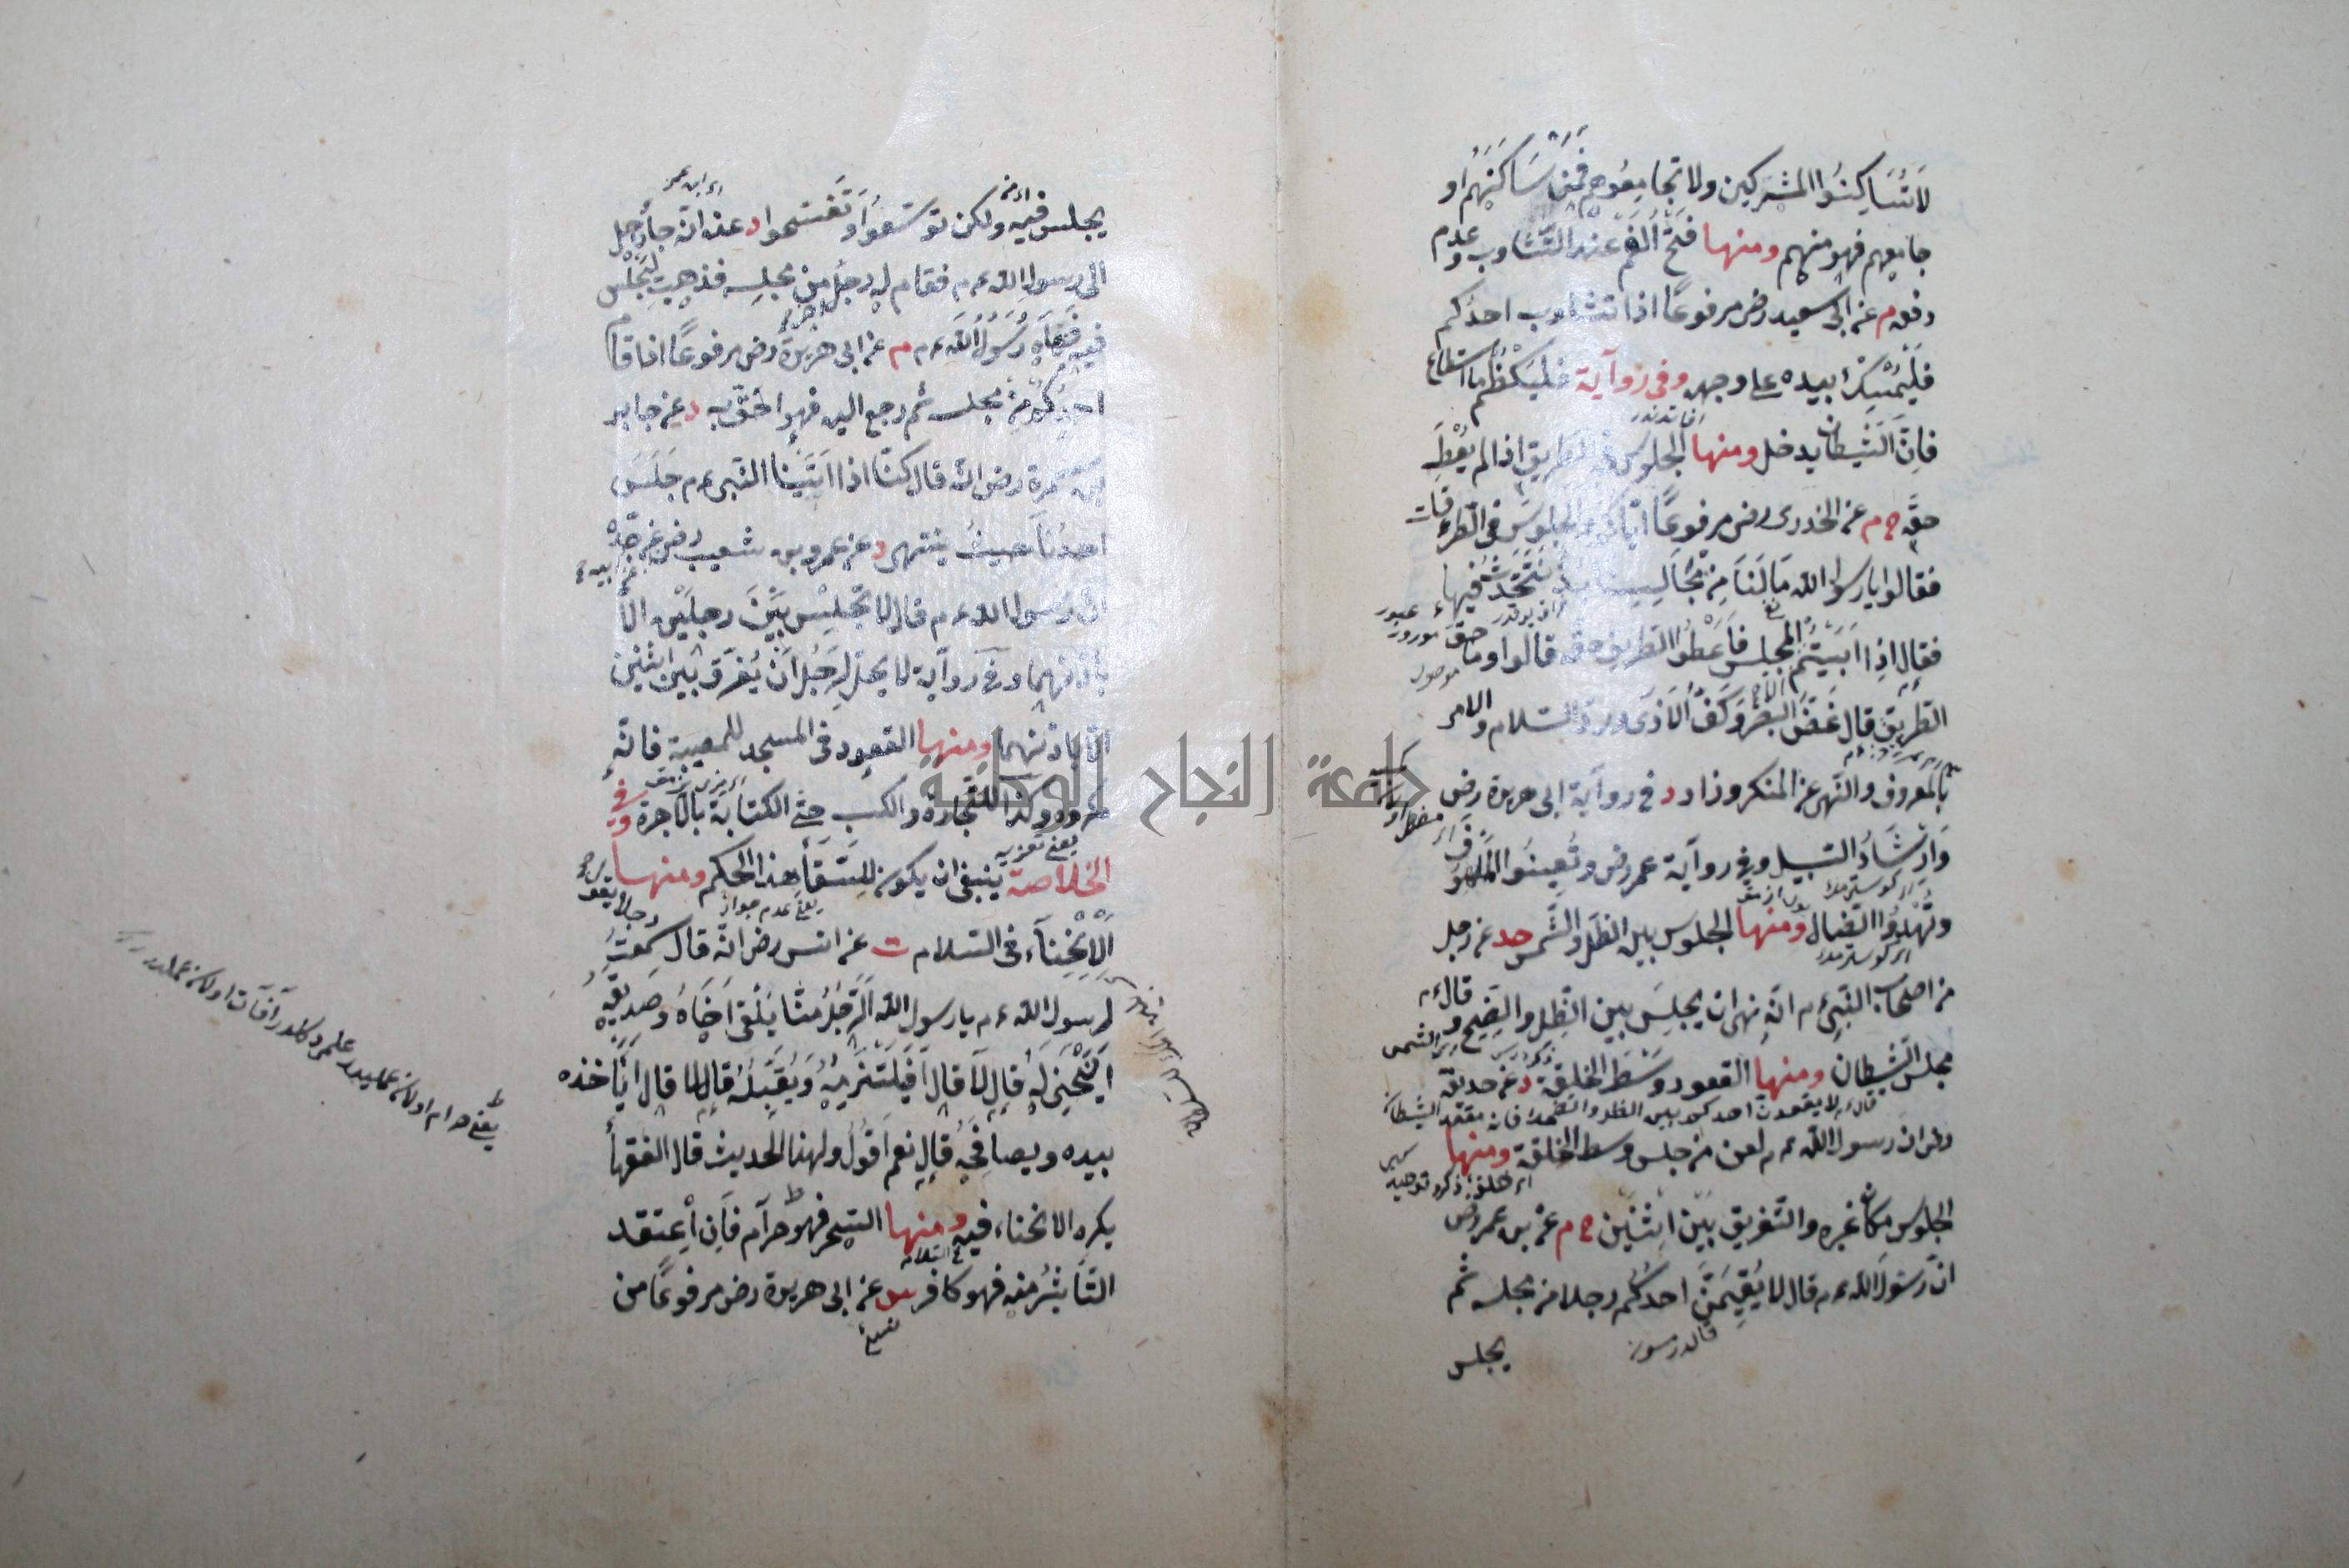 لَا تُسَاكِنُوا المشركين ولا تجامعوهم فَمَنْ سَاكَنَهُم او
جامعهم فهو منهم ومنها فتح الفم عند التثاوب وعدم
دفعه م عن ابى سعيد رض مرفوعاً اذا تثاوب احدكم
فَلْيُمْسِكْ بيده على وجهه وفى رواية فليكظم ما استطاع
فانّ الشيطان يدخل ومنها الجلوس فى الطريق اذا لم يُعْطِ
حقّه خ م عن الخدرى رض مرفوعاً ايّاكم والجلوسَ فى الطرقات
فقالوا يا رسول الله مَا لَنَا مِنْ مَجَالِسِنَا بدّ نَتَحَدَّثُ فيها
فقال اذا اَبَيْتُمْ الّا المجلس فَاَعْطُوا الطريق حقّه قالوا وما حقّ
الطريق قال غَضُّ البصر وكَفُّ الْاَذَى وردّ السّلام والامر
بالمعروف والنّهى عن المنكر وزاد د فى رواية ابى هريرة رض
وَاِرْشَادُ السّبيل وفى رواية عمر رض وتُعِينُوا الملهوف
وتَهْدُوا الضّالّ ومنها الجلوس بين الظلّ والشّمس حد عن رجل
من اصحاب النّبىّ ءم انّه نهى ان يجلس بين الظلّ والضّحّ وقال ءم
مجلس الشّيطان ومنها القعود وَسْطَ الحلقة د عن حذيفة
رض ان رسول الله ءم لعن من جلس وسط الحلقة ومنها
الجلوس مكان غيره والتّفريق بَيْنَ اِثْنَيْنِ خ م عن بن عمر رض
انّ رسول الله ءم قال لا يُقِيمَنَّ احدُكم رجلا من مجلسه ثم
يجلس
يجلس فيه ولكن توسّعُوا وتَفَسَّحوا د عنه انّه جاء رجل
الى رسول الله ءم فقام له رجل من مجلسه فذهب لِيَجْلِسَ
فيه فنهاه رَسُولُ الله ءم م عن ابى هريرة رض مرفوعاً اذا قام
احدكم من مجلسه ثم رجع اليه فهو احقّ به د عن جابر
بن سمرة رض الله قال كنّا اذا اتَيْنَا النّبى ءم جَلَسَ
احدُنَا حيث ينتهى د عن عمرو بن شعيب رض عن ابيه عن جدّه
انّ رسول الله ءم قال لا تَجْلِسْ بَيْنَ رجلَيْن الّا
باذنهما وفى رواية لا يحلّ لِرَجُلٍ اَنْ يُفَرِّقَ بين اثنين
الّا باذنهما ومنها القعود فى المسجد للمصيبة فانّه
مكروه وكذا للتّجارة والكسب حتّى الكتابة بالاجرة وفى
الخلاصة ينبغى ان يكون للسّقّا هذا الحكم ومنها
الْاِنْحِنَآء فى السّلام ت عن انس رض انّه قال سمعتُ
لرسول الله ءم يا رسول الله الرَّجُلُ مِنَّا يَلْقَى اَخَاهُ وصَدِيقَهُ
اَيَنْحَنِى لَهُ قال لَا قال اَفَيَلْتَزِمُهُ وَيُقَبِّلُهُ قال لا قال اَيَاْخذه
بيده ويصافحُهُ قال نعم اَقُولُ ولهذا الحديث قال الفقهأ
يكره الانحناء فيه ومنها السّحر فهو حرآم فَاِن اِعتقد
التَّأثيرُ منه فهو كافر س عن ابى هريرة رض مرفوعاً من
جامعة النجاح الوطنية